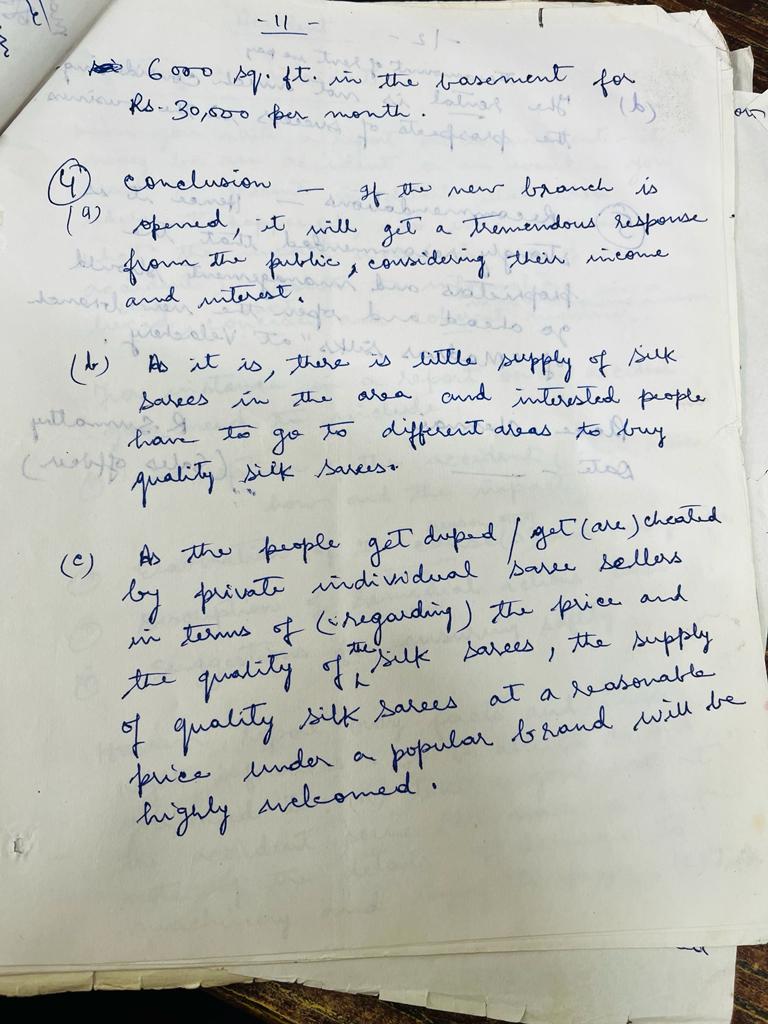 - 11 -
6000 sq. ft. in the basement for
Rs. 30,000 per month.
4 Conclusion — If the new branch is
(a) opened, it will get a tremendous response
from the public, considering their income
and interest.
(b) As it is, there is little supply of silk
sarees in the area and interested people
have to go to different areas to buy
quality silk sarees.
(c) As the people get duped / get (are) cheated
by private individual saree sellers
in terms of (regarding) the price and
the quality of the silk sarees, the supply
of quality silk sarees at a reasonable
price under a popular brand will be
highly welcomed.